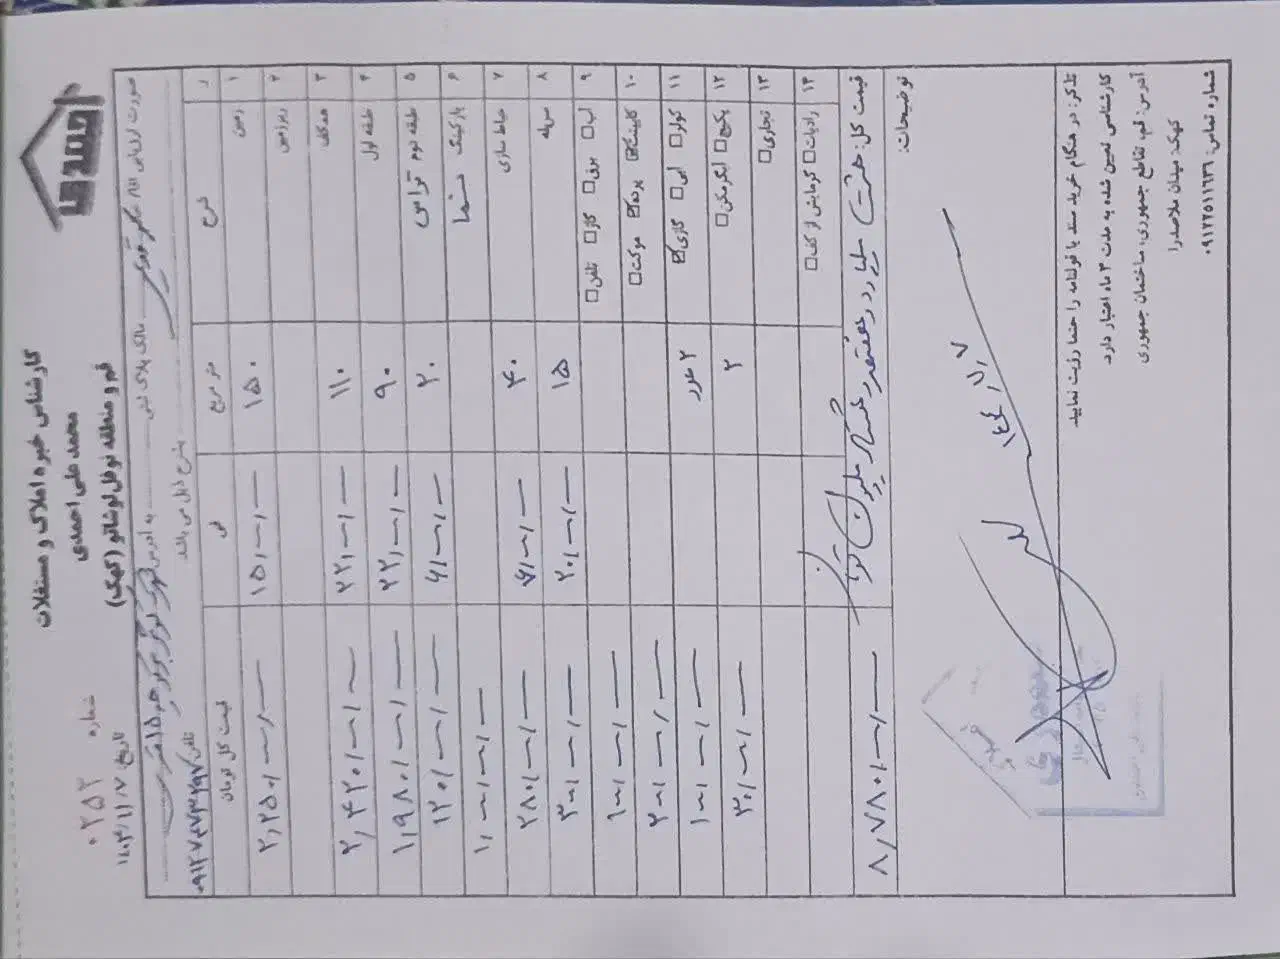 احمدی
کارشناس خبره املاک و مستغلات
محمد علی احمدی
قم و منطقه نوفل لوشاتو (کهک)
شماره
۰۲۵۲
تاریخ: ۱۴۰۳/۱۱/۰۷
صورت ارزیابی مالک پلاک ثبتی به آدرس
تلفن بشرح ذیل می باشد.
ر شرح متر مربع فی قیمت کل تومان
۱ زمین ۱۵۰ ۱۵/۰۰۰/۰۰۰ ۲/۲۵۰/۰۰۰/۰۰۰
۲ زیرزمین
۳ همکف ۱۱۰ ۲۲/۰۰۰/۰۰۰ ۲/۴۲۰/۰۰۰/۰۰۰
۴ طبقه اول ۹۰ ۲۲/۰۰۰/۰۰۰ ۱/۹۸۰/۰۰۰/۰۰۰
۵ طبقه دوم تراس ۲۰ ۶/۰۰۰/۰۰۰ ۱۲۰/۰۰۰/۰۰۰
۶ پارکینگ ۱/۰۰۰/۰۰۰/۰۰۰
۷ حیاط سازی ۴۰ ۲۸۰/۰۰۰/۰۰۰
۸ سرویس ۱۵ ۲۰/۰۰۰/۰۰۰ ۳۰۰/۰۰۰/۰۰۰
۹ آب □ برق □ گاز □ تلفن □
۱۰ کابینت ☑ پرده ☑ موکت □ ۲۰۰/۰۰۰/۰۰۰
۱۱ کولر □ آبی □ گازی ☑ ۲ عدد ۱۰۰/۰۰۰/۰۰۰
۱۲ پکیج □ آبگرمکن □ ۲ ۳۰/۰۰۰/۰۰۰
۱۳ تجاری □
۱۴ رادیات □ گرمایش از کف □
قیمت کل: هشت میلیارد و هفتصد و هشتاد میلیون تومان ۸/۷۸۰/۰۰۰/۰۰۰
توضیحات:
۱۴۰۳/۱۱/۷
تذکر: در هنگام خرید سند یا قولنامه را حتما رؤیت نمایید.
کارشناسی تعیین شده به مدت ۳ ماه اعتبار دارد.
آدرس: قم، تقاطع جمهوری، ساختمان جمهوری
کهک: میدان ملاصدرا
شماره تماس: ۰۹۱۲۲۵۱۱۶۳۶